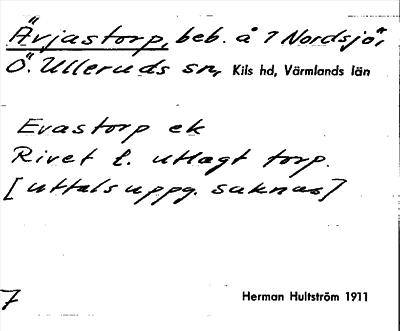 Ärjastorp, beb. å 7 Nordsjö,
Ö. Ulleruds sn, Kils hd, Värmlands län
Evastorp ek
Rivet l. utlagt torp.
[uttalsuppg. saknas]
7
Herman Hultström 1911